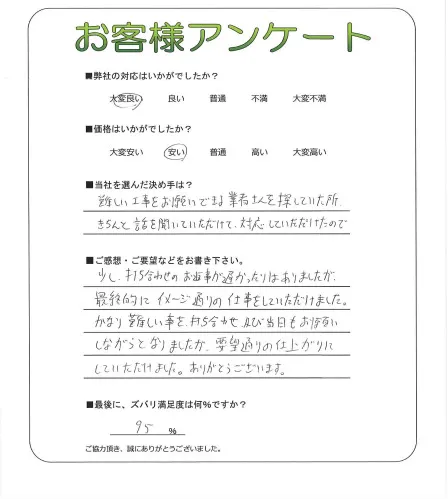 お客様アンケート
■弊社の対応はいかがでしたか？
大変良い 良い 普通 不満 大変不満
■価格はいかがでしたか？
大変安い 安い 普通 高い 大変高い
■当社を選んだ決め手は？
難しい工事をお願いできる業者さんを探していた所、
きちんと話を聞いていただけて、対応していただけたので
■ご感想・ご要望などをお書き下さい。
少し、打ち合わせのお返事が遅かったりはありましたが、
最終的にイメージ通りの仕事をしていただけました。
かなり難しい事を、打ち合わせ、及び当日もお願い
しながらとなりましたが、要望通りの仕上がりに
していただけました。ありがとうございます。
■最後に、ズバリ満足度は何％ですか？
95 ％
ご協力頂き、誠にありがとうございました。